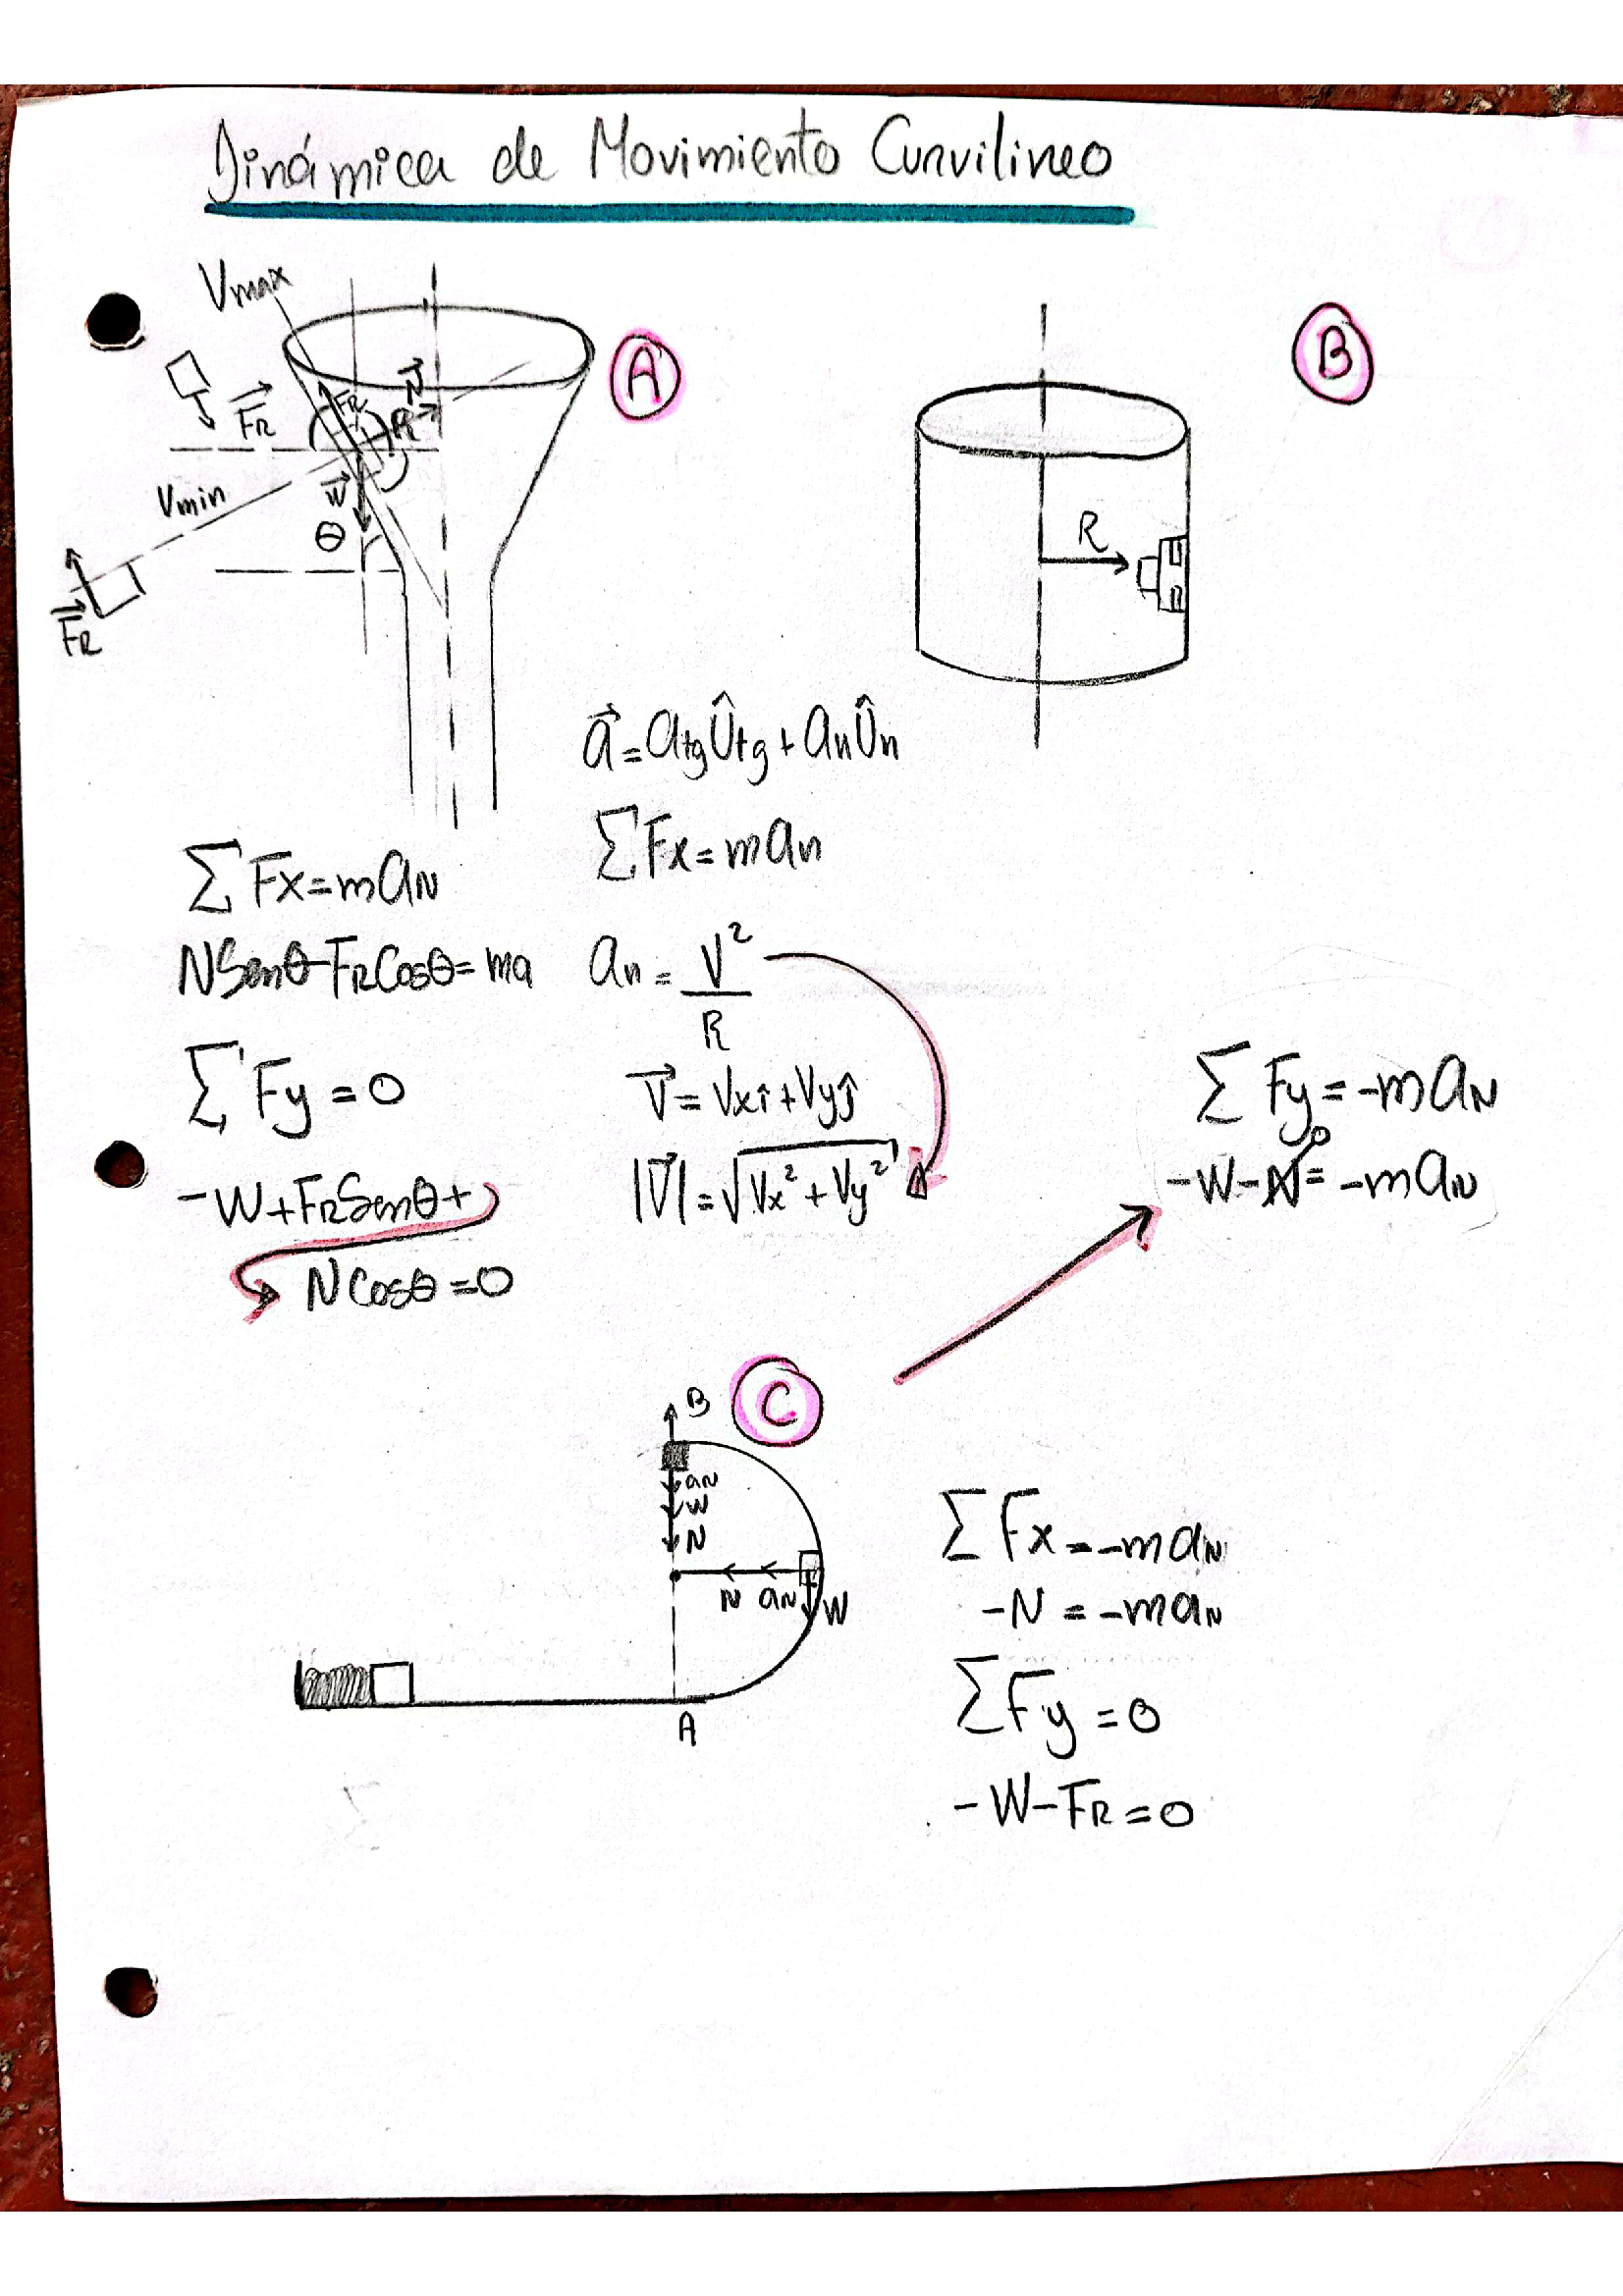 Dinámica de Movimiento Curvilineo
Vmax
A
B
N
FR
FR
R
Vmin
W
θ
FR
R
a = atg Ûtg + an Ûn
ΣFx = man
ΣFx = maN
NSenθ - FRCosθ = ma
an = V² / R
ΣFy = 0
V = Vxî + Vyĵ
-W + FRSenθ +
NCosθ = 0
|V| = √Vx² + Vy²
ΣFy = -maN
-W - N = -maN
0
C
B
aN
W
N
N aN W
A
ΣFx = -maN
-N = -maN
ΣFy = 0
-W - FR = 0